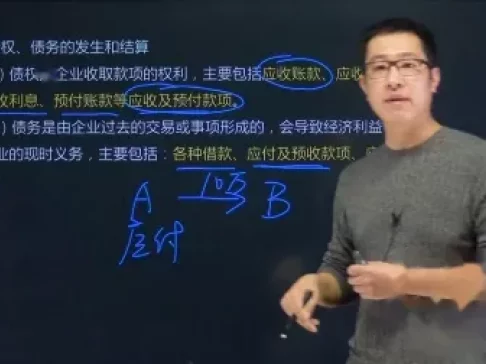 权、债务的发生和结算
）债权，企业收取款项的权利，主要包括应收账款、应收
收利息、预付账款等应收及预付款项。
）债务是由企业过去的交易或事项形成的，会导致经济利益
业的现时义务，主要包括：各种借款、应付及预收款项、
10万
A B
应付